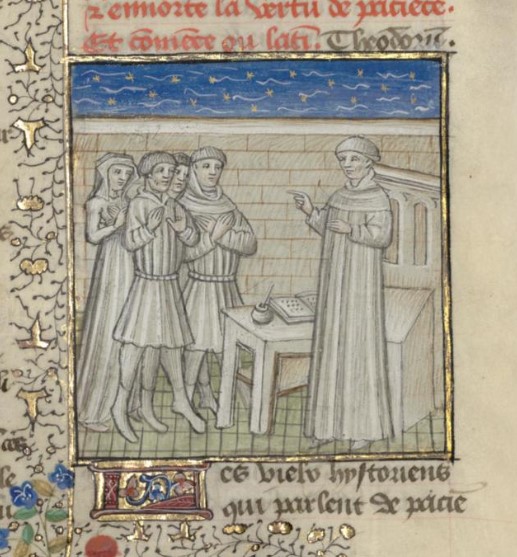 z enhorte la vertu de pacience.
Et comēce ou latī. Theodorus.
ces vielz hystoriens
qui parlent de paciē